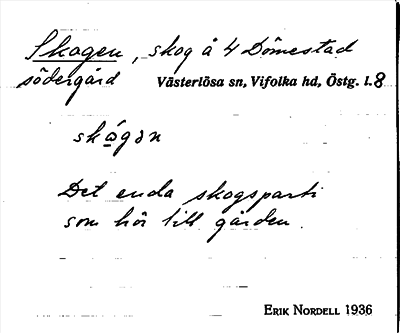 Skogen, skog å 4 Dömestad
södergård Västerlösa sn, Vifolka hd, Östg. l. 8
skógən
Det enda skogsparti
som hör till gården.
ERIK NORDELL 1936